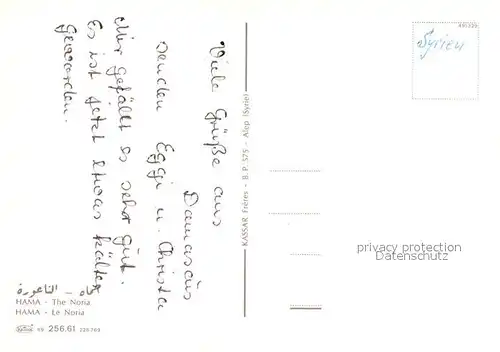 Viele Grüße aus
Damascus
senden Eggi u. Christa
Mir gefällt es sehr gut.
Es ist jetzt etwas kälter
geworden.
حماه - الناعورة
HAMA - The Noria
HAMA - Le Noria
69 256.61
KASSAR Frères - B.P. 575 - Alep (Syrie)
Syrien
privacy protection
Datenschutz